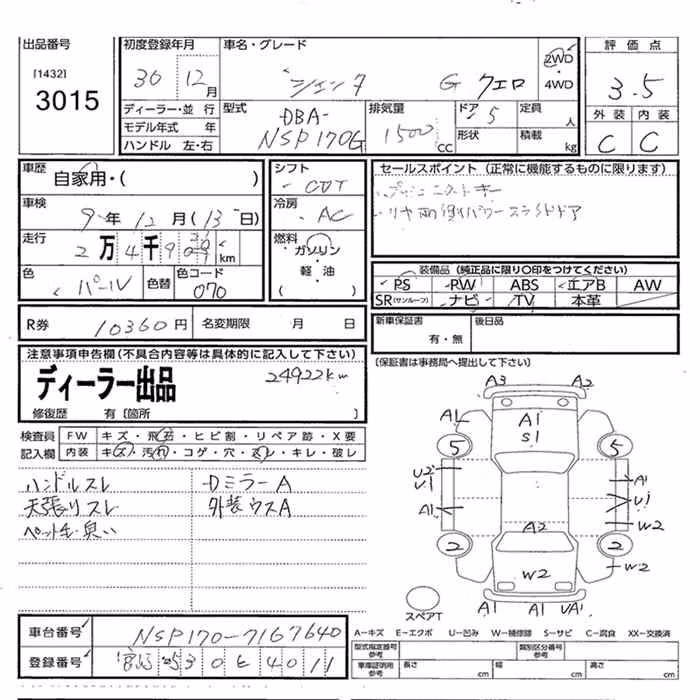 出品番号
[1432]
3015
初度登録年月
30 12月
車名・グレード
シエンタ G クエロ
2WD
・
4WD
評価点
3.5
ディーラー・並行
モデル年式 年
ハンドル 左・右
型式
DBA-
NSP170G
排気量
1500 CC
ドア 5
形状
定員 人
積載 kg
外装 内装
C C
車歴
自家用・( )
車検
9年 12月(13日)
走行
2万4千9 km
色
パール
色替
色コード
070
シフト
CVT
冷房
AC
燃料
ガソリン
・
軽・油
( )
セールスポイント (正常に機能するものに限ります)
プッシュスタートキー
リヤ両側パワースライドドア
装備品 (純正品に限り○印をつけてください)
PS RW ABS エアB AW
SR(サンルーフ) ナビ TV 本革
R券 10360円
名変期限 月 日
新車保証書
有・無
後日品
(保証書は事務局へ提出して下さい)
注意事項申告欄(不具合内容等は具体的に記入して下さい)
ディーラー出品
24922km
修復歴 有〔箇所 〕
検査員
記入欄
FW キズ・飛石・ヒビ割・リペア跡・X要
内装 キズ・汚れ・コゲ・穴・スレ・キレ・破レ
ハンドルスレ
天張リスレ
ペット毛・臭い
Dミラー A
外装ウスA
A3 A2
A1
A1
S1
5 5
U2
U1
A1
A1
U1
W2
A2
2 2
W2
W2
A1 A1 UA1
スペアT
車台番号 NSP170-7167640
登録番号 530 4011
A-キズ E-エクボ U-凹み W-補修跡 S-サビ C-腐食 XX-交換済
型式指定番号
参考
類別区分番号
参考
車庫証明用
参考
長さ cm
幅 cm
高さ cm